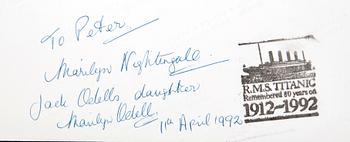 To Peter.
Marilyn Nightingale.
Jack Odells daughter
Marilyn Odell.
11th April 1992
R.M.S. TITANIC
Remembered 80 years on
1912-1992